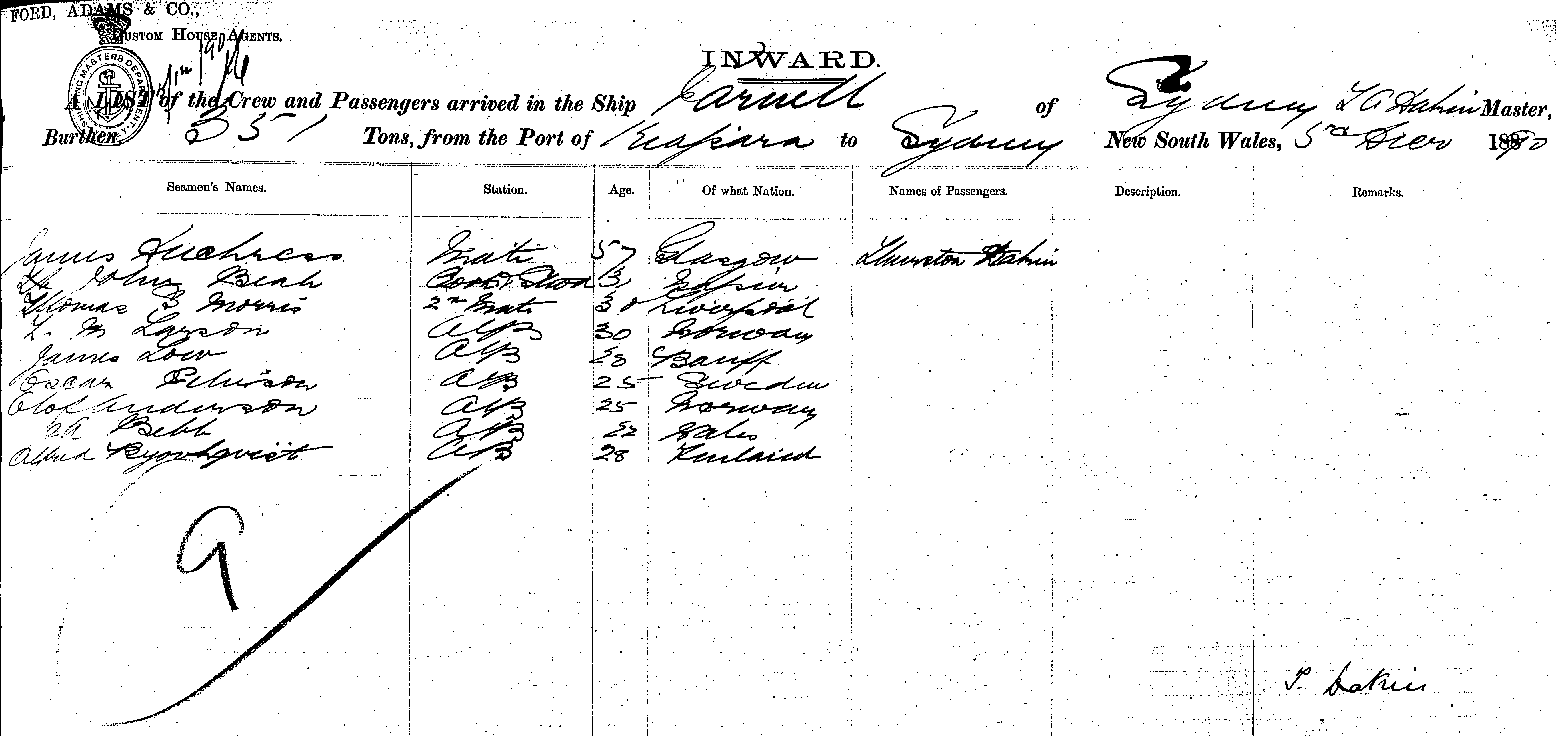 FORD, ADAMS & CO.,
CUSTOM HOUSE AGENTS.
INWARD.
A LIST of the Crew and Passengers arrived in the Ship of Sydney Dakin Master,
Burthen 351 Tons, from the Port of Kaipara to Sydney New South Wales, 1890
Seamen's Names. Station. Age. Of what Nation. Names of Passengers. Description. Remarks.
James Mate 57 Glasgow Thurston Dakin
John Beah Cook & Stwd
Thomas Morris 2nd Mate 30 Liverpool
Larson AB 30 Norway
James Low AB 28 Banff
Oscar AB 25 Sweden
Olof Anderson AB 25 Norway
Bebb AB 22 Wales
Alfred AB 28 Finland
9
T. Dakin